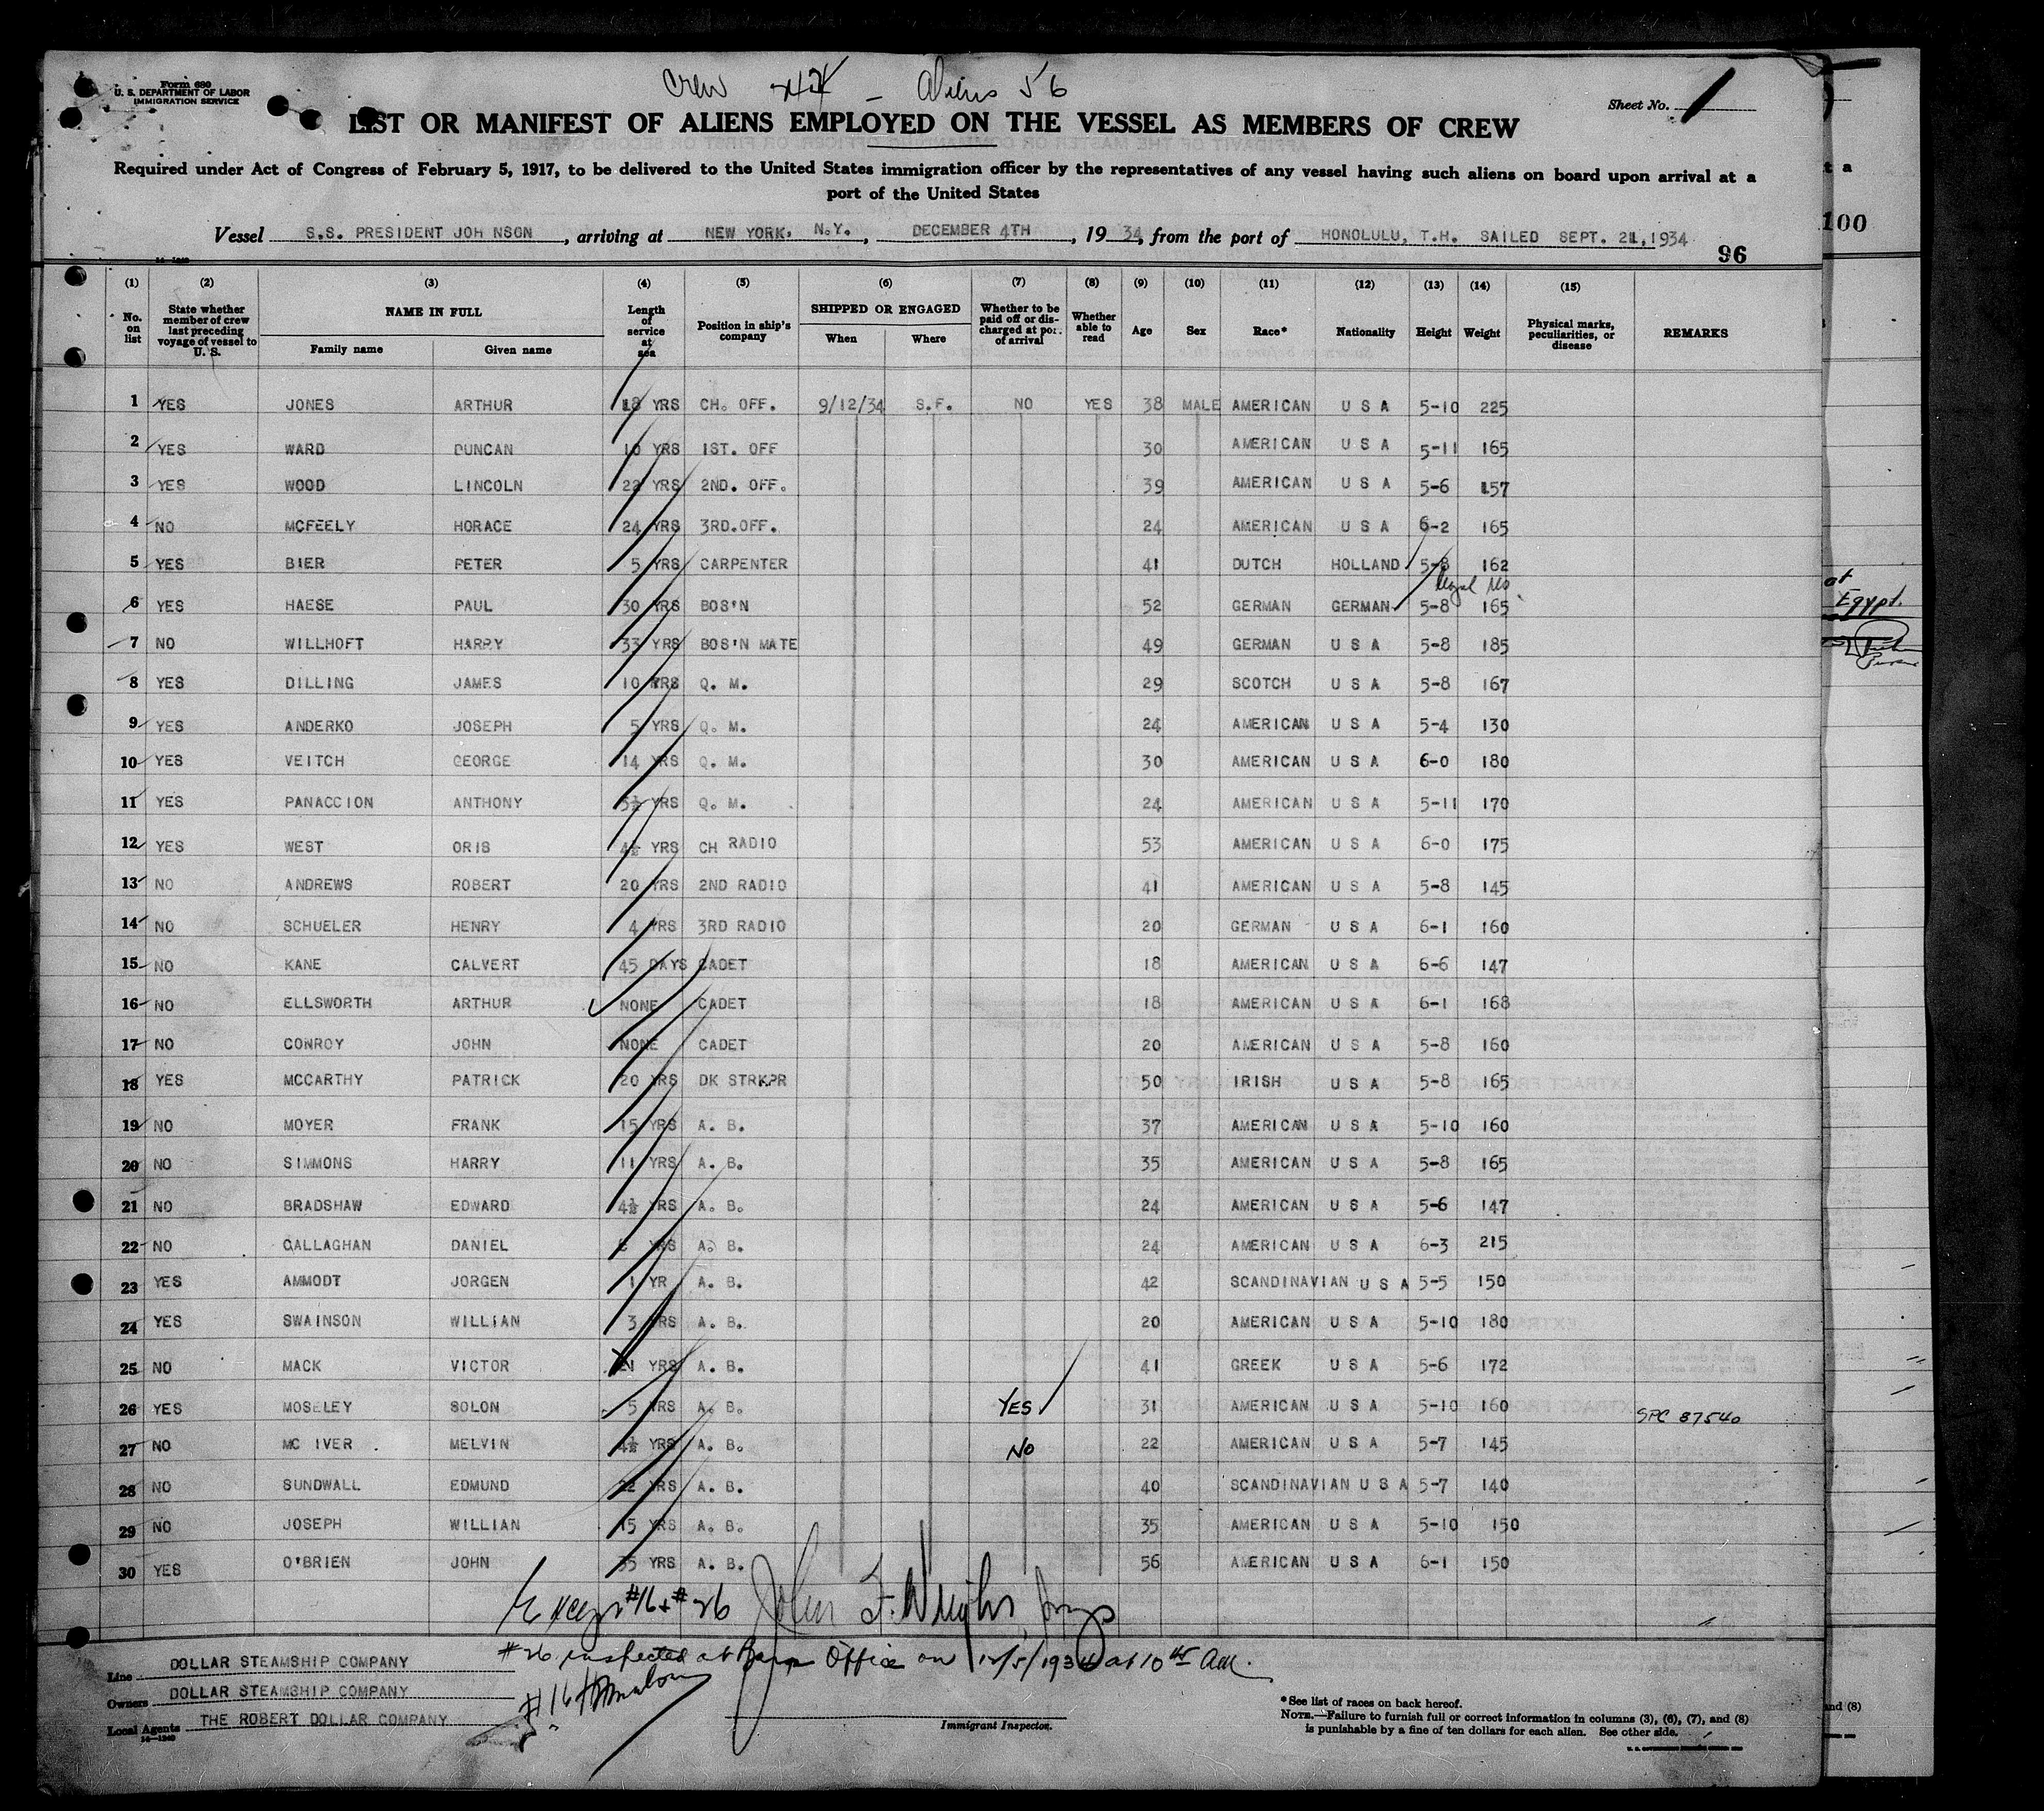 Form 680
U. S. DEPARTMENT OF LABOR
IMMIGRATION SERVICE
Crew - Aliens 56
Sheet No. 1
LIST OR MANIFEST OF ALIENS EMPLOYED ON THE VESSEL AS MEMBERS OF CREW
Required under Act of Congress of February 5, 1917, to be delivered to the United States immigration officer by the representatives of any vessel having such aliens on board upon arrival at a
port of the United States
Vessel S.S. PRESIDENT JOH NSON, arriving at NEW YORK, N.Y., DECEMBER 4TH, 1934, from the port of HONOLULU, T.H. SAILED SEPT. 21, 1934
96
(1) No. on list (2) State whether member of crew last preceding voyage of vessel to U. S. (3) NAME IN FULL Family name Given name (4) Length of service at sea (5) Position in ship's company (6) SHIPPED OR ENGAGED When Where (7) Whether to be paid off or discharged at port of arrival (8) Whether able to read (9) Age (10) Sex (11) Race* (12) Nationality (13) Height (14) Weight (15) Physical marks, peculiarities, or disease REMARKS
1 YES JONES ARTHUR 18 YRS CH. OFF. 9/12/34 S.F. NO YES 38 MALE AMERICAN U S A 5-10 225
2 YES WARD DUNCAN 10 YRS 1ST. OFF 30 AMERICAN U S A 5-11 165
3 YES WOOD LINCOLN 22 YRS 2ND. OFF. 39 AMERICAN U S A 5-6 157
4 NO MCFEELY HORACE 24 YRS 3RD.OFF. 24 AMERICAN U S A 6-2 165
5 YES BIER PETER 5 YRS CARPENTER 41 DUTCH HOLLAND 5-8 162
legal res
6 YES HAESE PAUL 30 YRS BOS'N 52 GERMAN GERMAN 5-8 165
7 NO WILLHOFT HARRY 33 YRS BOS'N MATE 49 GERMAN U S A 5-8 185
8 YES DILLING JAMES 10 YRS Q. M. 29 SCOTCH U S A 5-8 167
9 YES ANDERKO JOSEPH 5 YRS Q. M. 24 AMERICAN U S A 5-4 130
10 YES VEITCH GEORGE 14 YRS Q. M. 30 AMERICAN U S A 6-0 180
11 YES PANACCION ANTHONY 5½ YRS Q. M. 24 AMERICAN U S A 5-11 170
12 YES WEST ORIS 4½ YRS CH RADIO 53 AMERICAN U S A 6-0 175
13 NO ANDREWS ROBERT 20 YRS 2ND RADIO 41 AMERICAN U S A 5-8 145
14 NO SCHUELER HENRY 4 YRS 3RD RADIO 20 GERMAN U S A 6-1 160
15 NO KANE CALVERT 45 DAYS CADET 18 AMERICAN U S A 6-6 147
16 NO ELLSWORTH ARTHUR NONE CADET 18 AMERICAN U S A 6-1 168
17 NO CONROY JOHN NONE CADET 20 AMERICAN U S A 5-8 160
18 YES MCCARTHY PATRICK 20 YRS DK STRKPR 50 IRISH U S A 5-8 165
19 NO MOYER FRANK 15 YRS A. B. 37 AMERICAN U S A 5-10 160
20 NO SIMMONS HARRY 11 YRS A. B. 35 AMERICAN U S A 5-8 165
21 NO BRADSHAW EDWARD 4½ YRS A. B. 24 AMERICAN U S A 5-6 147
22 NO CALLAGHAN DANIEL YRS A. B. 24 AMERICAN U S A 6-3 215
23 YES AMMODT JORGEN 1 YR A. B. 42 SCANDINAVIAN U S A 5-5 150
24 YES SWAINSON WILLIAN 3 YRS A. B. 20 AMERICAN U S A 5-10 180
25 NO MACK VICTOR 21 YRS A. B. 41 GREEK U S A 5-6 172
26 YES MOSELEY SOLON 5 YRS A. B. YES 31 AMERICAN U S A 5-10 160 SPC 87540
27 NO MC IVER MELVIN 4½ YRS A. B. NO 22 AMERICAN U S A 5-7 145
28 NO SUNDWALL EDMUND 22 YRS A. B. 40 SCANDINAVIAN U S A 5-7 140
29 NO JOSEPH WILLIAN 15 YRS A. B. 35 AMERICAN U S A 5-10 150
30 YES O'BRIEN JOHN 35 YRS A. B. 56 AMERICAN U S A 6-1 150
Except #16 + #26 John F. Wright
#26 inspected at Barge Office on 12/5/1934 at 10 AM.
#16
Line DOLLAR STEAMSHIP COMPANY
Owners DOLLAR STEAMSHIP COMPANY
Local Agents THE ROBERT DOLLAR COMPANY
14—1240
Immigrant Inspector.
*See list of races on back hereof.
NOTE.—Failure to furnish full or correct information in columns (3), (6), (7), and (8)
is punishable by a fine of ten dollars for each alien. See other side.
t a
100
at
Egypt.
and (8)